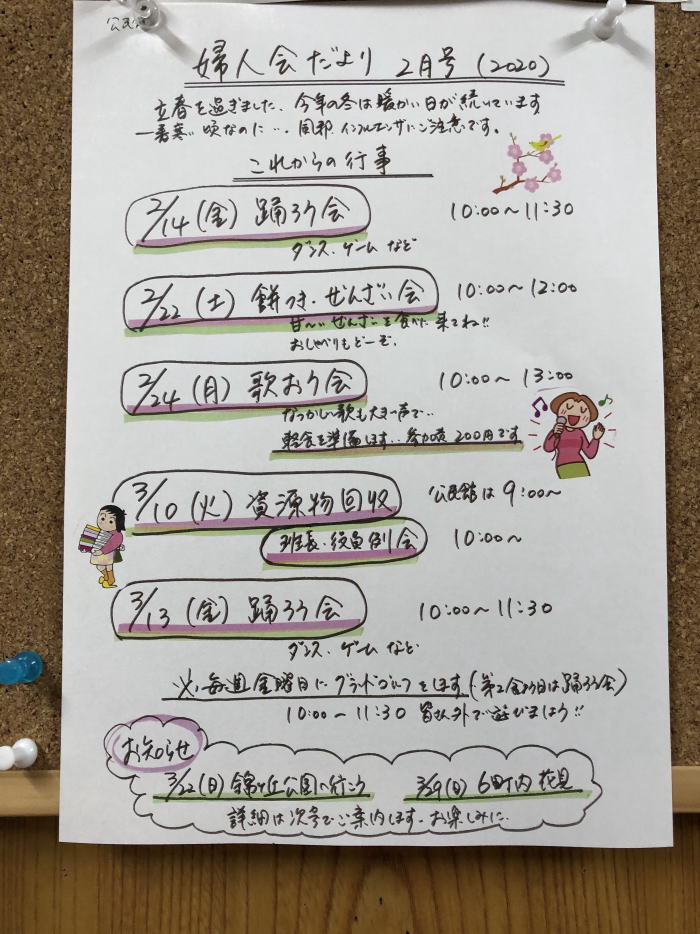 公民館
婦人会だより 2月号 (2020)
立春を過ぎました、今年の冬は暖かい日が続いています
一番寒い頃なのに…風邪、インフルエンザにご注意です。
これからの行事
2/14 (金) 踊ろう会 10:00〜11:30
ダンス、ゲーム など
2/22 (土) 餅つき・ぜんざい会 10:00〜12:00
甘〜いぜんざいを食べに来てね!!
おしゃべりもどーぞ、
2/24 (月) 歌おう会 10:00〜13:00
なつかしい歌も大きい声で…
軽食を準備します・・参加費200円です
3/10 (火) 資源物回収 公民館は9:00〜
班長・役員例会 10:00〜
3/13 (金) 踊ろう会 10:00〜11:30
ダンス、ゲーム など
※毎週金曜日にグランドゴルフをします (第2金曜日は踊ろう会)
10:00〜11:30 皆さん外で遊びましょう!!
お知らせ
3/22 (日) 錦ヶ丘公園へ行こう 3/29 (日) 6町内 花見
詳細は次号でご案内します、お楽しみに、